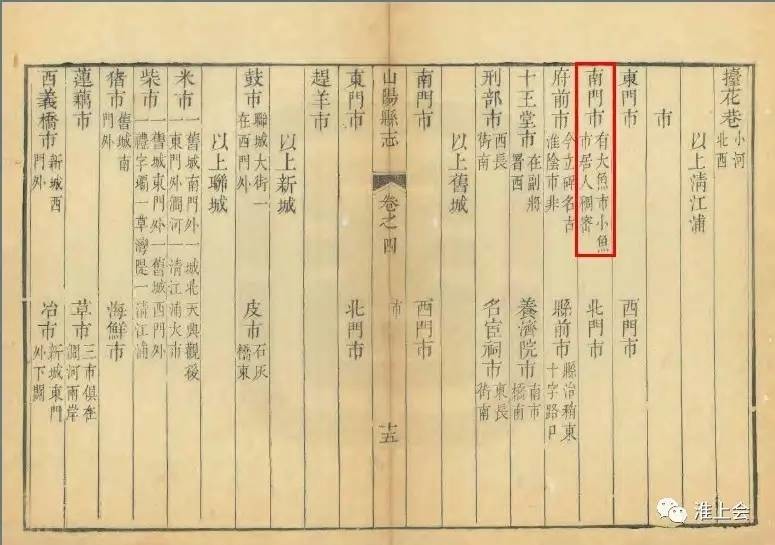 擡花巷 小河北西
以上清江浦
市
東門市 西門市
南門市 有大魚市小魚市居人稠密 北門市
府前市 今立碑名古淮陰市非 縣前市 縣治稍東十字路口
十王堂市 在副將署西 養濟院市 南市橋南
刑部市 西長街南 名宦祠市 東長街南
以上舊城
南門市 西門市
山陽縣志 卷之四 市 十五
東門市 北門市
趕羊市
以上新城
鼓市 聯城大街一在西門外 皮市 石灰橋東
以上聯城
米市 一舊城南門外一城北天興觀後一東門外澗河一清江浦大市
柴市 一舊城東門外一舊城西門外一禮字壩一草灣隄一清江浦
猪市 舊城南門外 海鮮市
蓮藕市 草市 三市俱在澗河兩岸
西義橋市 新城西門外 冶市 新城東門外下關
淮上会